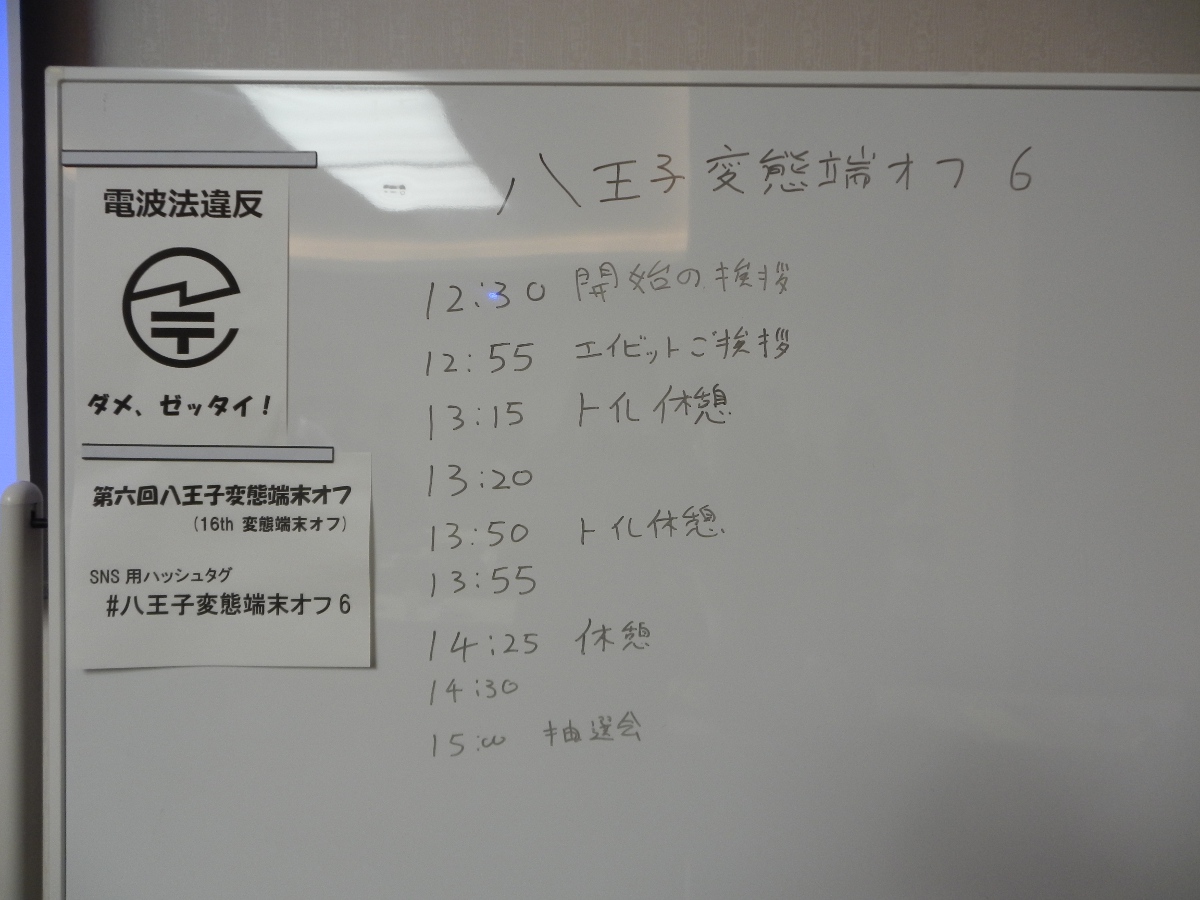 八王子変態端オフ 6
電波法違反
ダメ、ゼッタイ！
第六回八王子変態端末オフ
(16th 変態端末オフ)
SNS 用ハッシュタグ
#八王子変態端末オフ6
12:30 開始の挨拶
12:55 エイビットご挨拶
13:15 トイレ休憩
13:20
13:50 トイレ休憩
13:55
14:25 休憩
14:30
15:00 抽選会